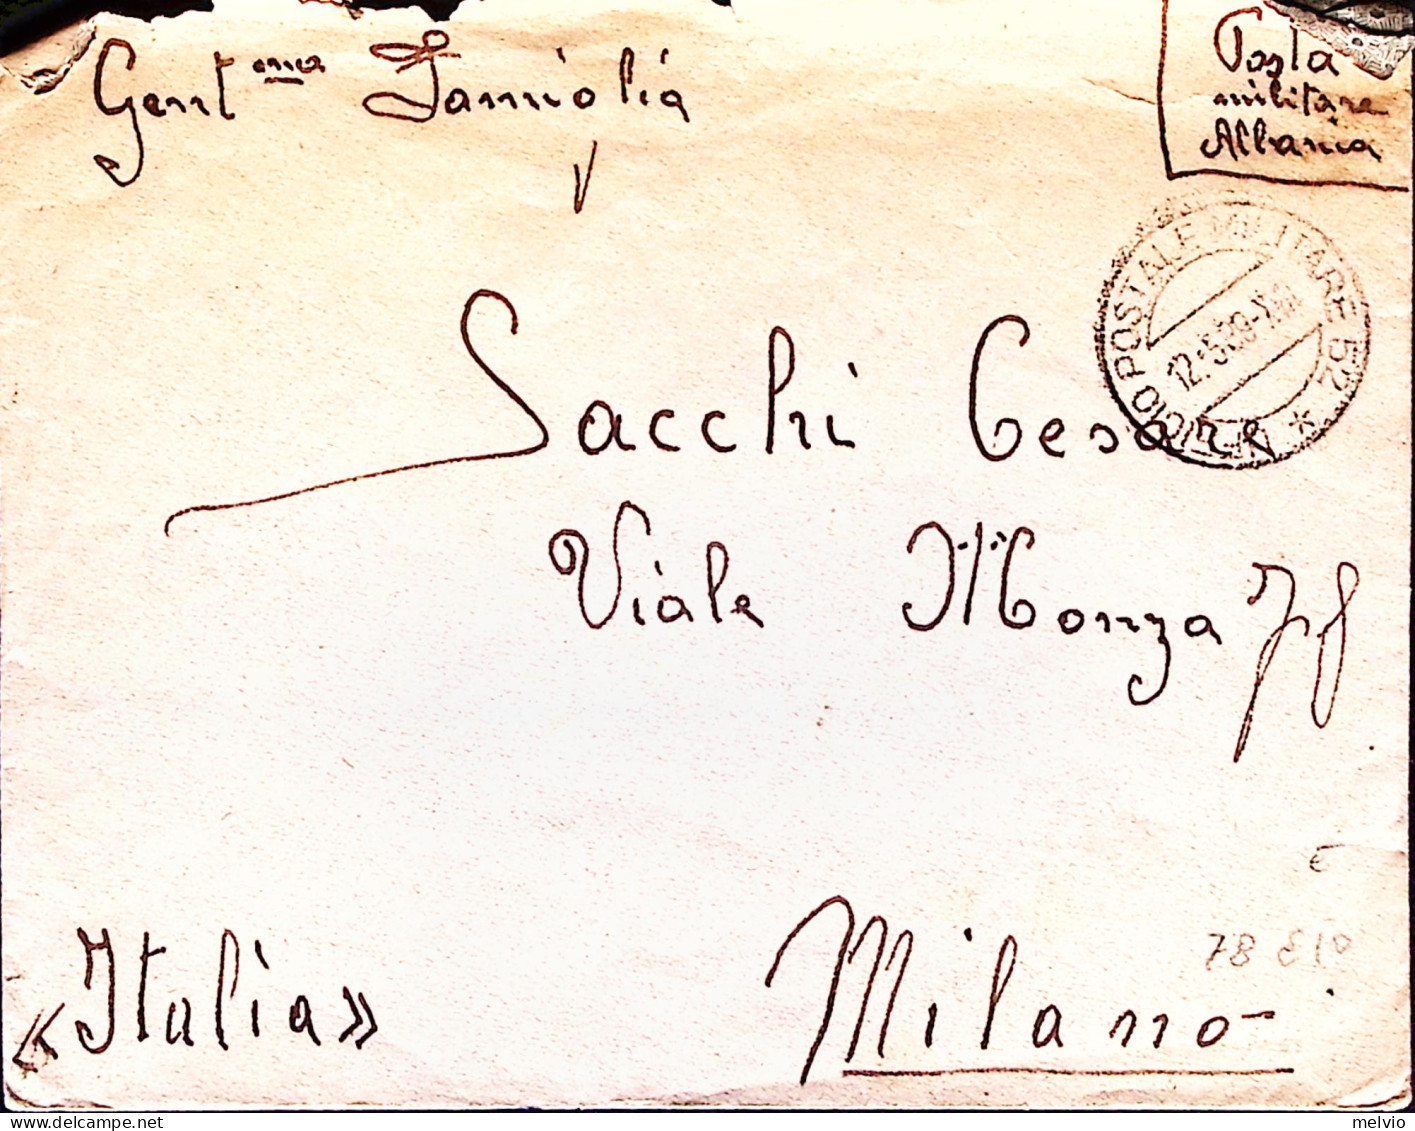 Gent.ma Famiglia
Posta
militare
Albania
UFFICIO POSTALE MILITARE 52 *
12.5.39-XVII
Sacchi Cesare
Viale Monza
«Italia»
Milano
78 € 10
melvio